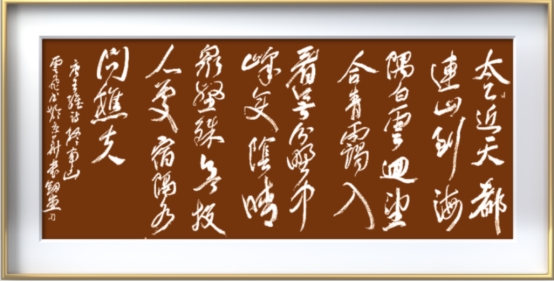 太乙近天都
連山到海
隅白雲迴望
合青靄入
看無分野中
峰變陰晴
眾壑殊欲投
人處宿隔水
問樵夫
唐王維詩終南山